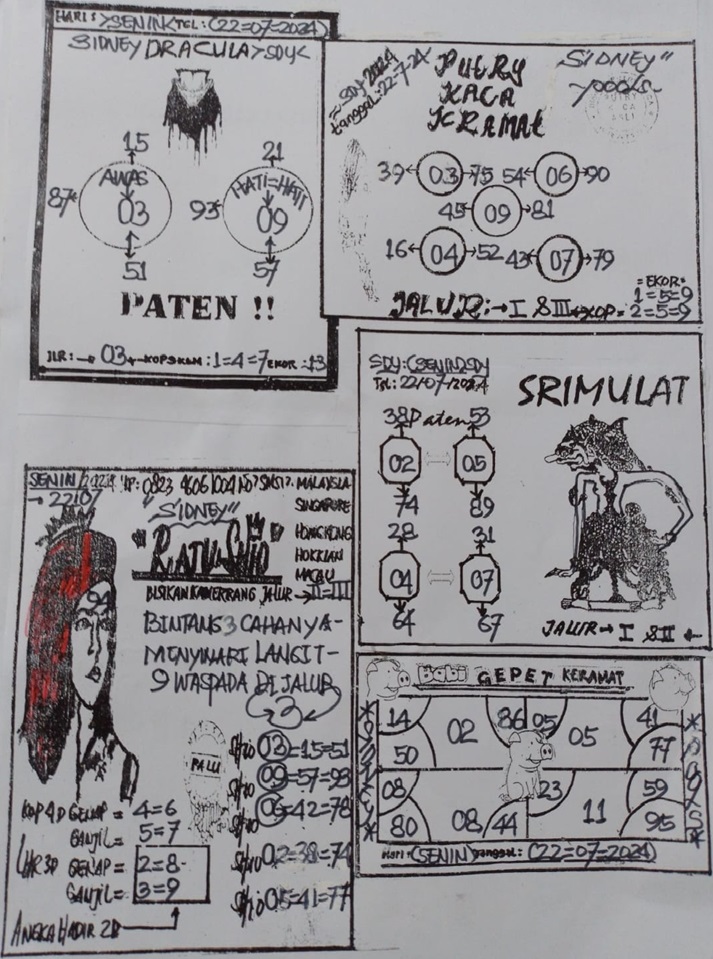 HARI: SENIN TGL: (22=07=2024)
SIDNEY DRACULA SDY
15 21
AWAS HATI=HATI
87 03 93 09
51 57
PATEN !!
JLR: 03 KOP : 1=4=7 EKOR :
SDY 2024
tanggal: 22-7-24
PUTRY
KACA
KRAMAt
SiDNEY"
pools
39 03 75 54 06 90
45 09 81
16 04 52 43 07 79
=EKOR=
1=5=9
JALUR: I & III KOP= 2=5=9
SDY: (SENIN) SDY
TGL: 22/07/2024
SRIMULAT
38 Paten 53
02 05
74 89
28 31
04 07
64 67
JALUR I & II
SENIN
22/07
MALAYSIA
SINGAPORE
HONGKONG
HOKKIAN
MACAU
"SIDNEY"
"RATU SHIO"
BISIKAN JALUR II=III
94
BINTANG 3 CAHANYA-
MENYINARI LANGIT-
9 WASPADA DI JALUR
3
PALU
Shio 03=15=51
Shio 09=57=93
Shio 06=42=78
Shio 02=38=74
Shio 05=41=77
KOP 4D GENAP = 4=6
GANJIL = 5=7
LHR 3D GENAP = 2=8
GANJIL = 3=9
ANGKA HADIR 2D
BABI GEPET KERAMAT
14 02 86 05 41
50 05 77
08 23 59
80 08 44 11 95
HARI: (SENIN) tanggal: (22=07=2024)